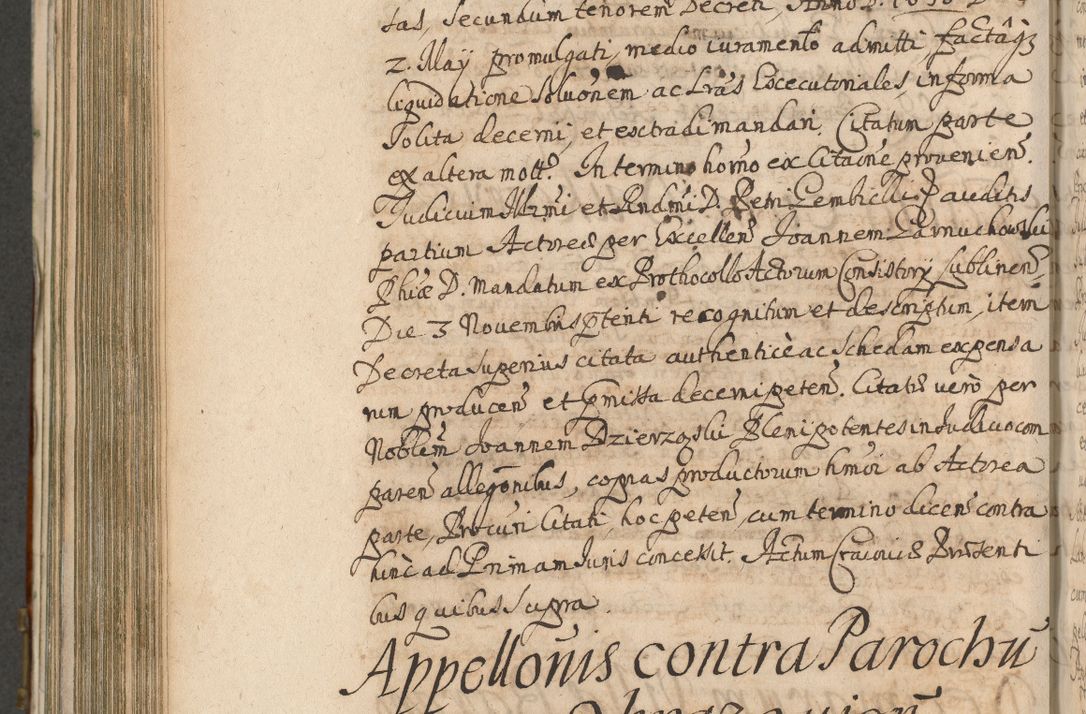 tas, Secundum tenorem Decreti, Anno D. 1650 D
2. May promulgati, medio iuramento admitti, factaqz
liquidatione Soluonem ac Lras Excecutoriales, in forma
Solita decerni, et esctradi mandari. Citatum parte
ex altera mott. In termino horno ex Citaone provenien.
Judicium Illrmi et Rndmi D. Petri Gembicki P auditis
partium Actorea per Excellen Joannem Garnuchowski
Phiæ D. Mandatum ex Prothocollo Actorum Consistory Lublinen.
Die 3 Novembris ptenti recognitum et descriptum, item
Decreta superius citata authenticè ac Schedam expensa
rum producen et pmissa decerni peten. Citatis verò per
Noblem Joannem Dzierzgski Plenipotentes in Judicio com
paren allegonibus, copias productorum hmoi ab Actorea
parte, Procuri Citati, hoc peten, cum termino dicen contra
hinc ad Primam Juris concessit. Actum Cracoviæ Præsenti
bus quibus Supra.
Appellonis contra Parochu